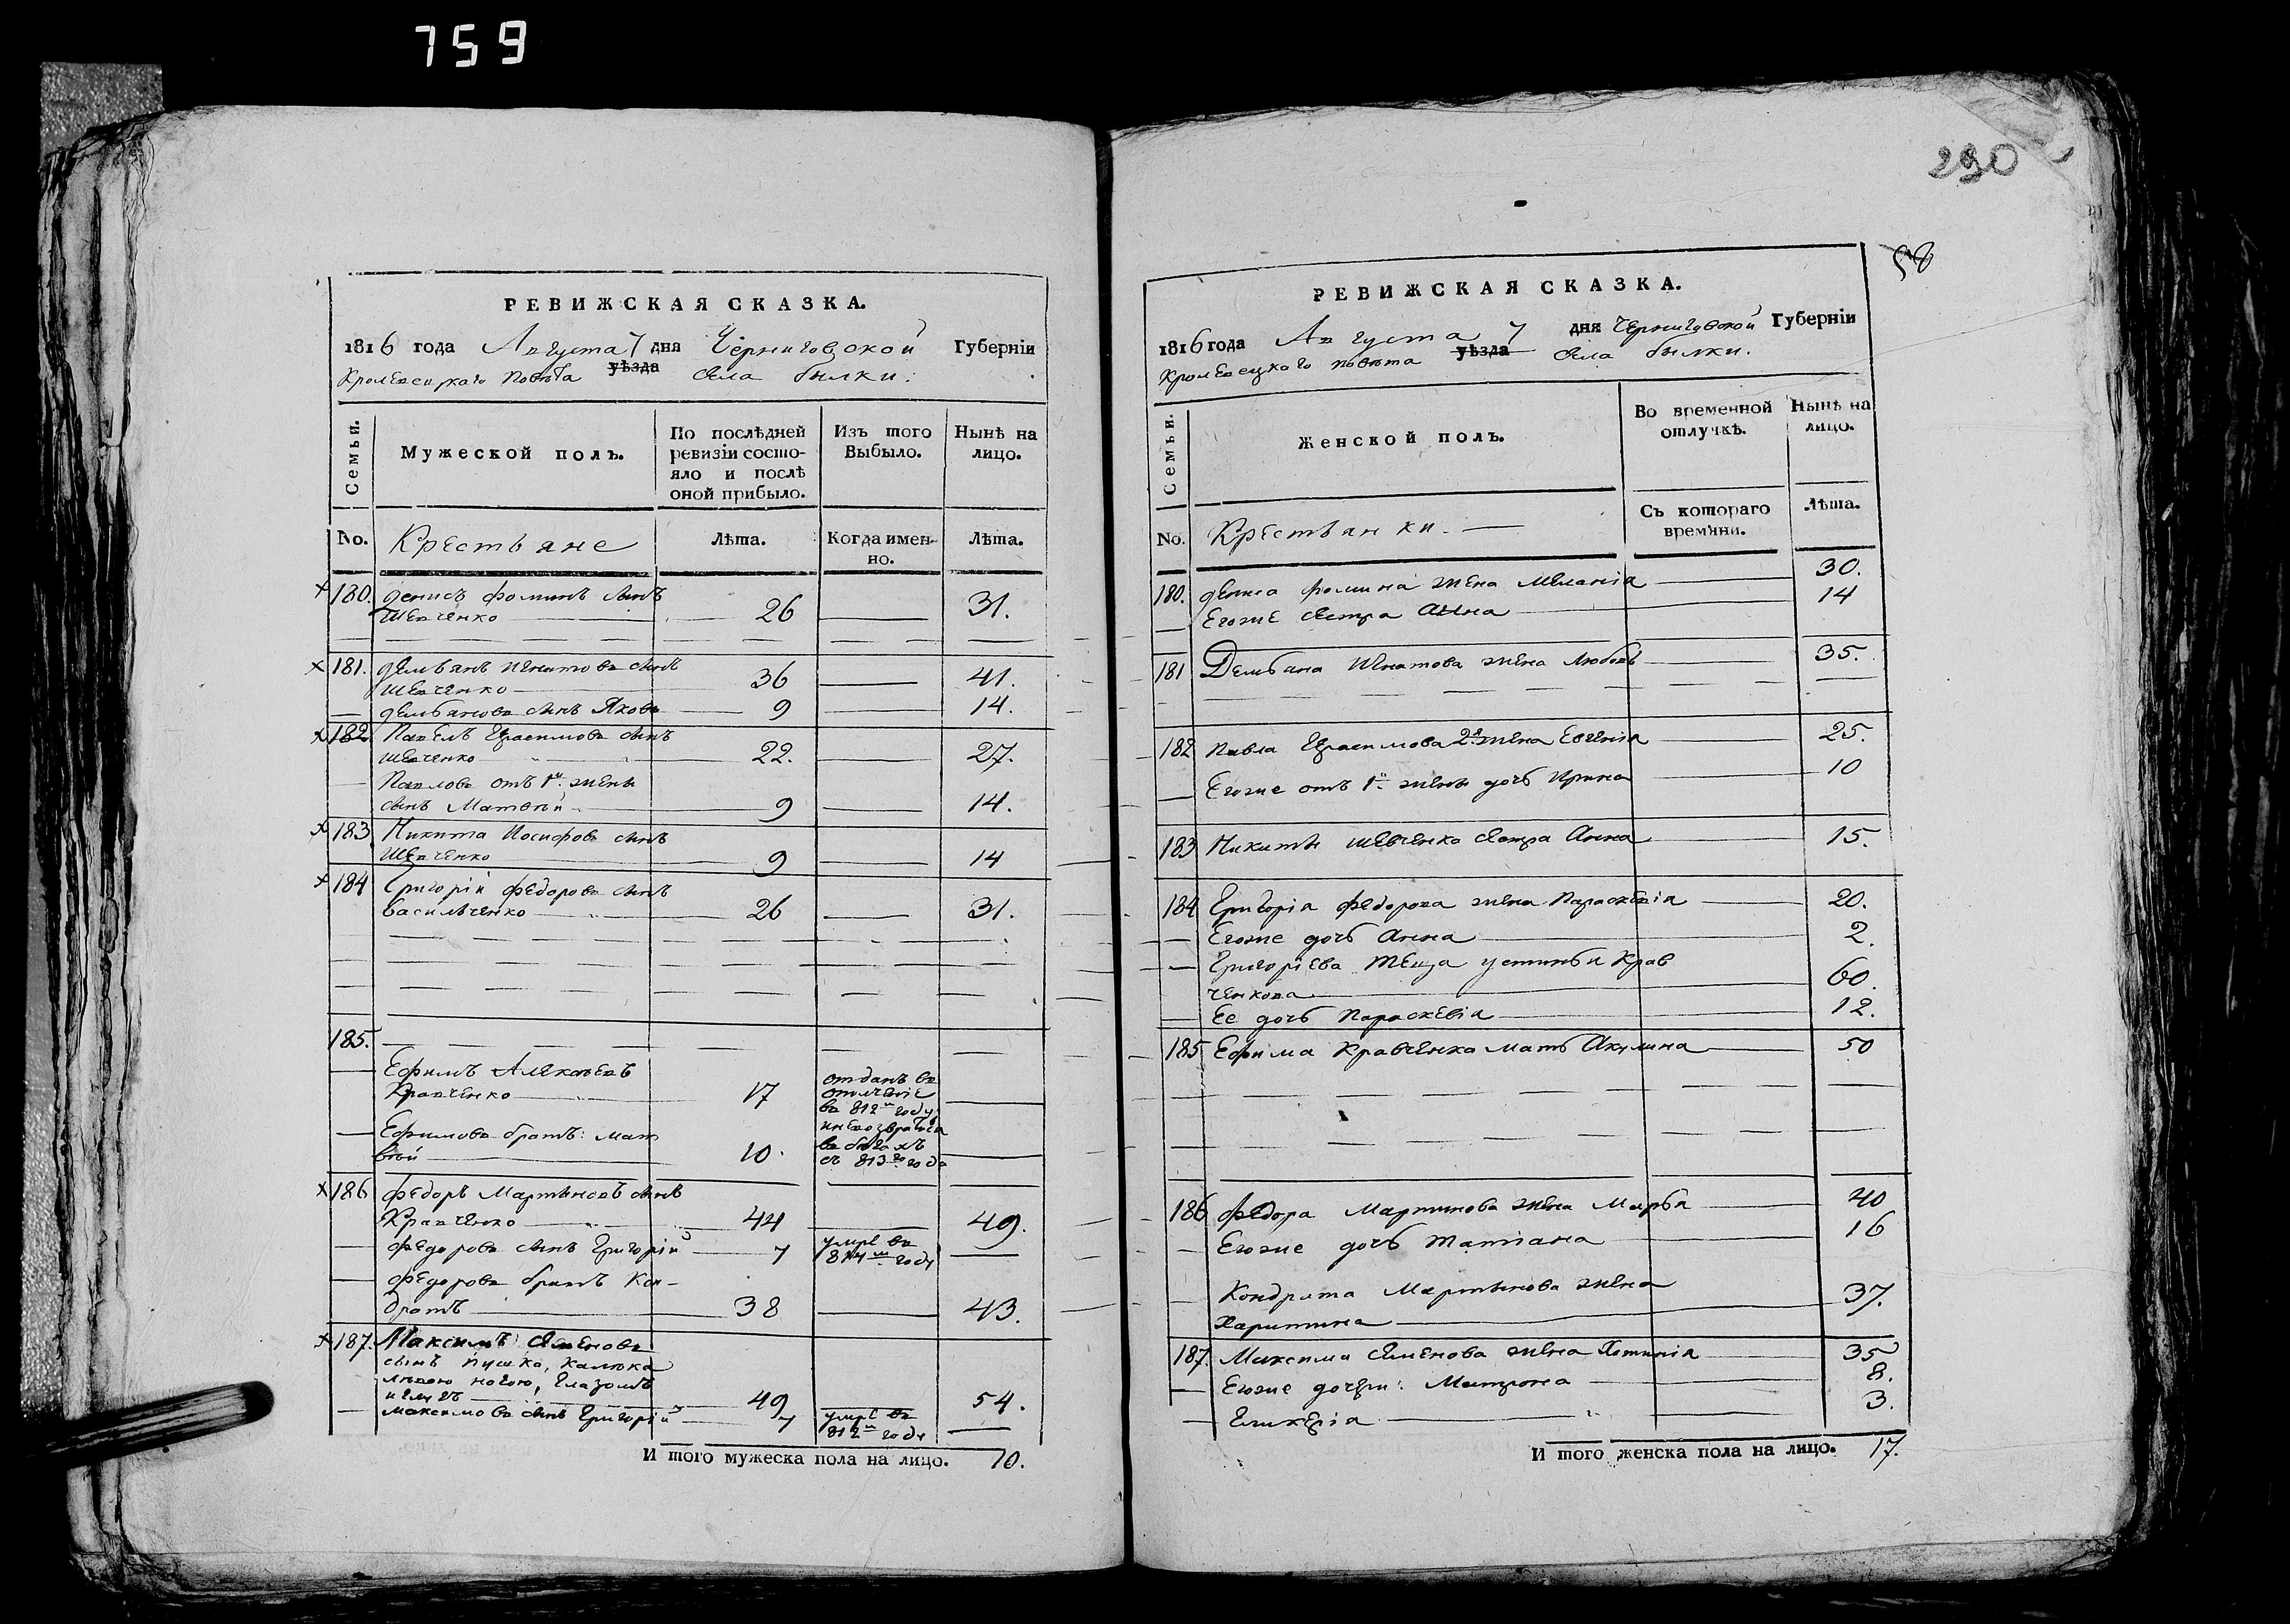 759
290
58
РЕВИЖСКАЯ СКАЗКА.
1816 года Августа 7 дня Черниговской Губерніи
Кролевецкаго повѣта уѣзда села былки.
Семьи.
Мужеской полъ.
По послѣдней ревизіи состо-
яло и послѣ
оной прибыло.
Изъ того Выбыло.
Нынѣ на лицо.
No. Крестьяне Лѣта. Когда имен-
но. Лѣта.
180. денисъ фоминъ сынъ
Шевченко 26 31.
181. демьянъ сынъ
Шевченко 36 41.
демьяновъ сынъ Яковъ 9 14.
182 Павелъ Герасимовъ сынъ
шевченко 22. 27.
Павловъ отъ 1й жены
сынъ Матвѣй 9 14.
183 Никита Иосифовъ сынъ
Шевченко 9 14
184 Григорій федоровъ сынъ
василченко 26 31.
185.
Ефимъ
Кравченко 17 отданъ въ
ополченіе
въ 812м году
Ефимовъ братъ: Мат
вѣй 10. въ бѣгахъ
съ 813го года
186 федоръ Мартыновъ сынъ
Кравченко 44 49.
федоровъ сынъ Григорій 7 умре въ
814м году
федоровъ братъ Кон-
дратъ 38 43.
187. Максимъ Семеновъ
сынъ пушка, калѣка
лѣвою ногою, глазомъ
49 54.
максимовъ сынъ Григорій 7 умре въ
812м году
И того мужеска пола на лицо. 10.
РЕВИЖСКАЯ СКАЗКА.
1816 года Августа 7 дня Черниговской Губерніи
Кролевецкаго повѣта уѣзда села былки.
Семьи.
Женской полъ.
Во временной отлучкѣ.
Нынѣ на лицо.
No. Крестьянки. Съ котораго
времяни. Лѣта.
180. дениса фомина жена Меланія 30.
Егоже сестра Анна 14
181 Демьяна жена Любовь 35.
182 Павла Герасимова 2я жена Евгенія 25.
Егоже отъ 1й жены дочь Ирина 10
183 Никиты шевченка сестра Анна 15.
184 Григорія федорова жена Параскевія 20.
Егоже дочь Анна 2.
Григоріева теща устинья Крав
ченкова 60.
Ее дочь Параскевія 12.
185 Ефима Кравченка мать Акулина 50
186 федора Мартинова жена Марья 40
Егоже дочь татіана 16
Кондрата Мартынова жена
Харитина 37.
187. Максима Семенова жена Хотинія 35
Егоже дочери: Матрона 8.
Гликерія 3.
И того женска пола на лицо. 17.